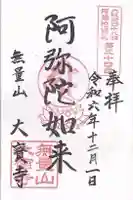 奉拝
令和六年十二月一日
阿弥陀如来
無量山
大寳寺